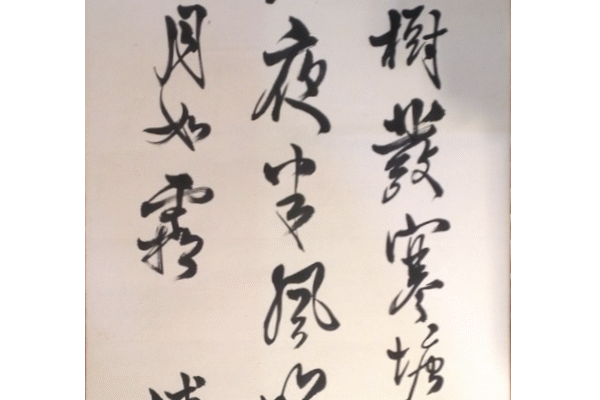 樹發寒塘
夜半風
月如霜